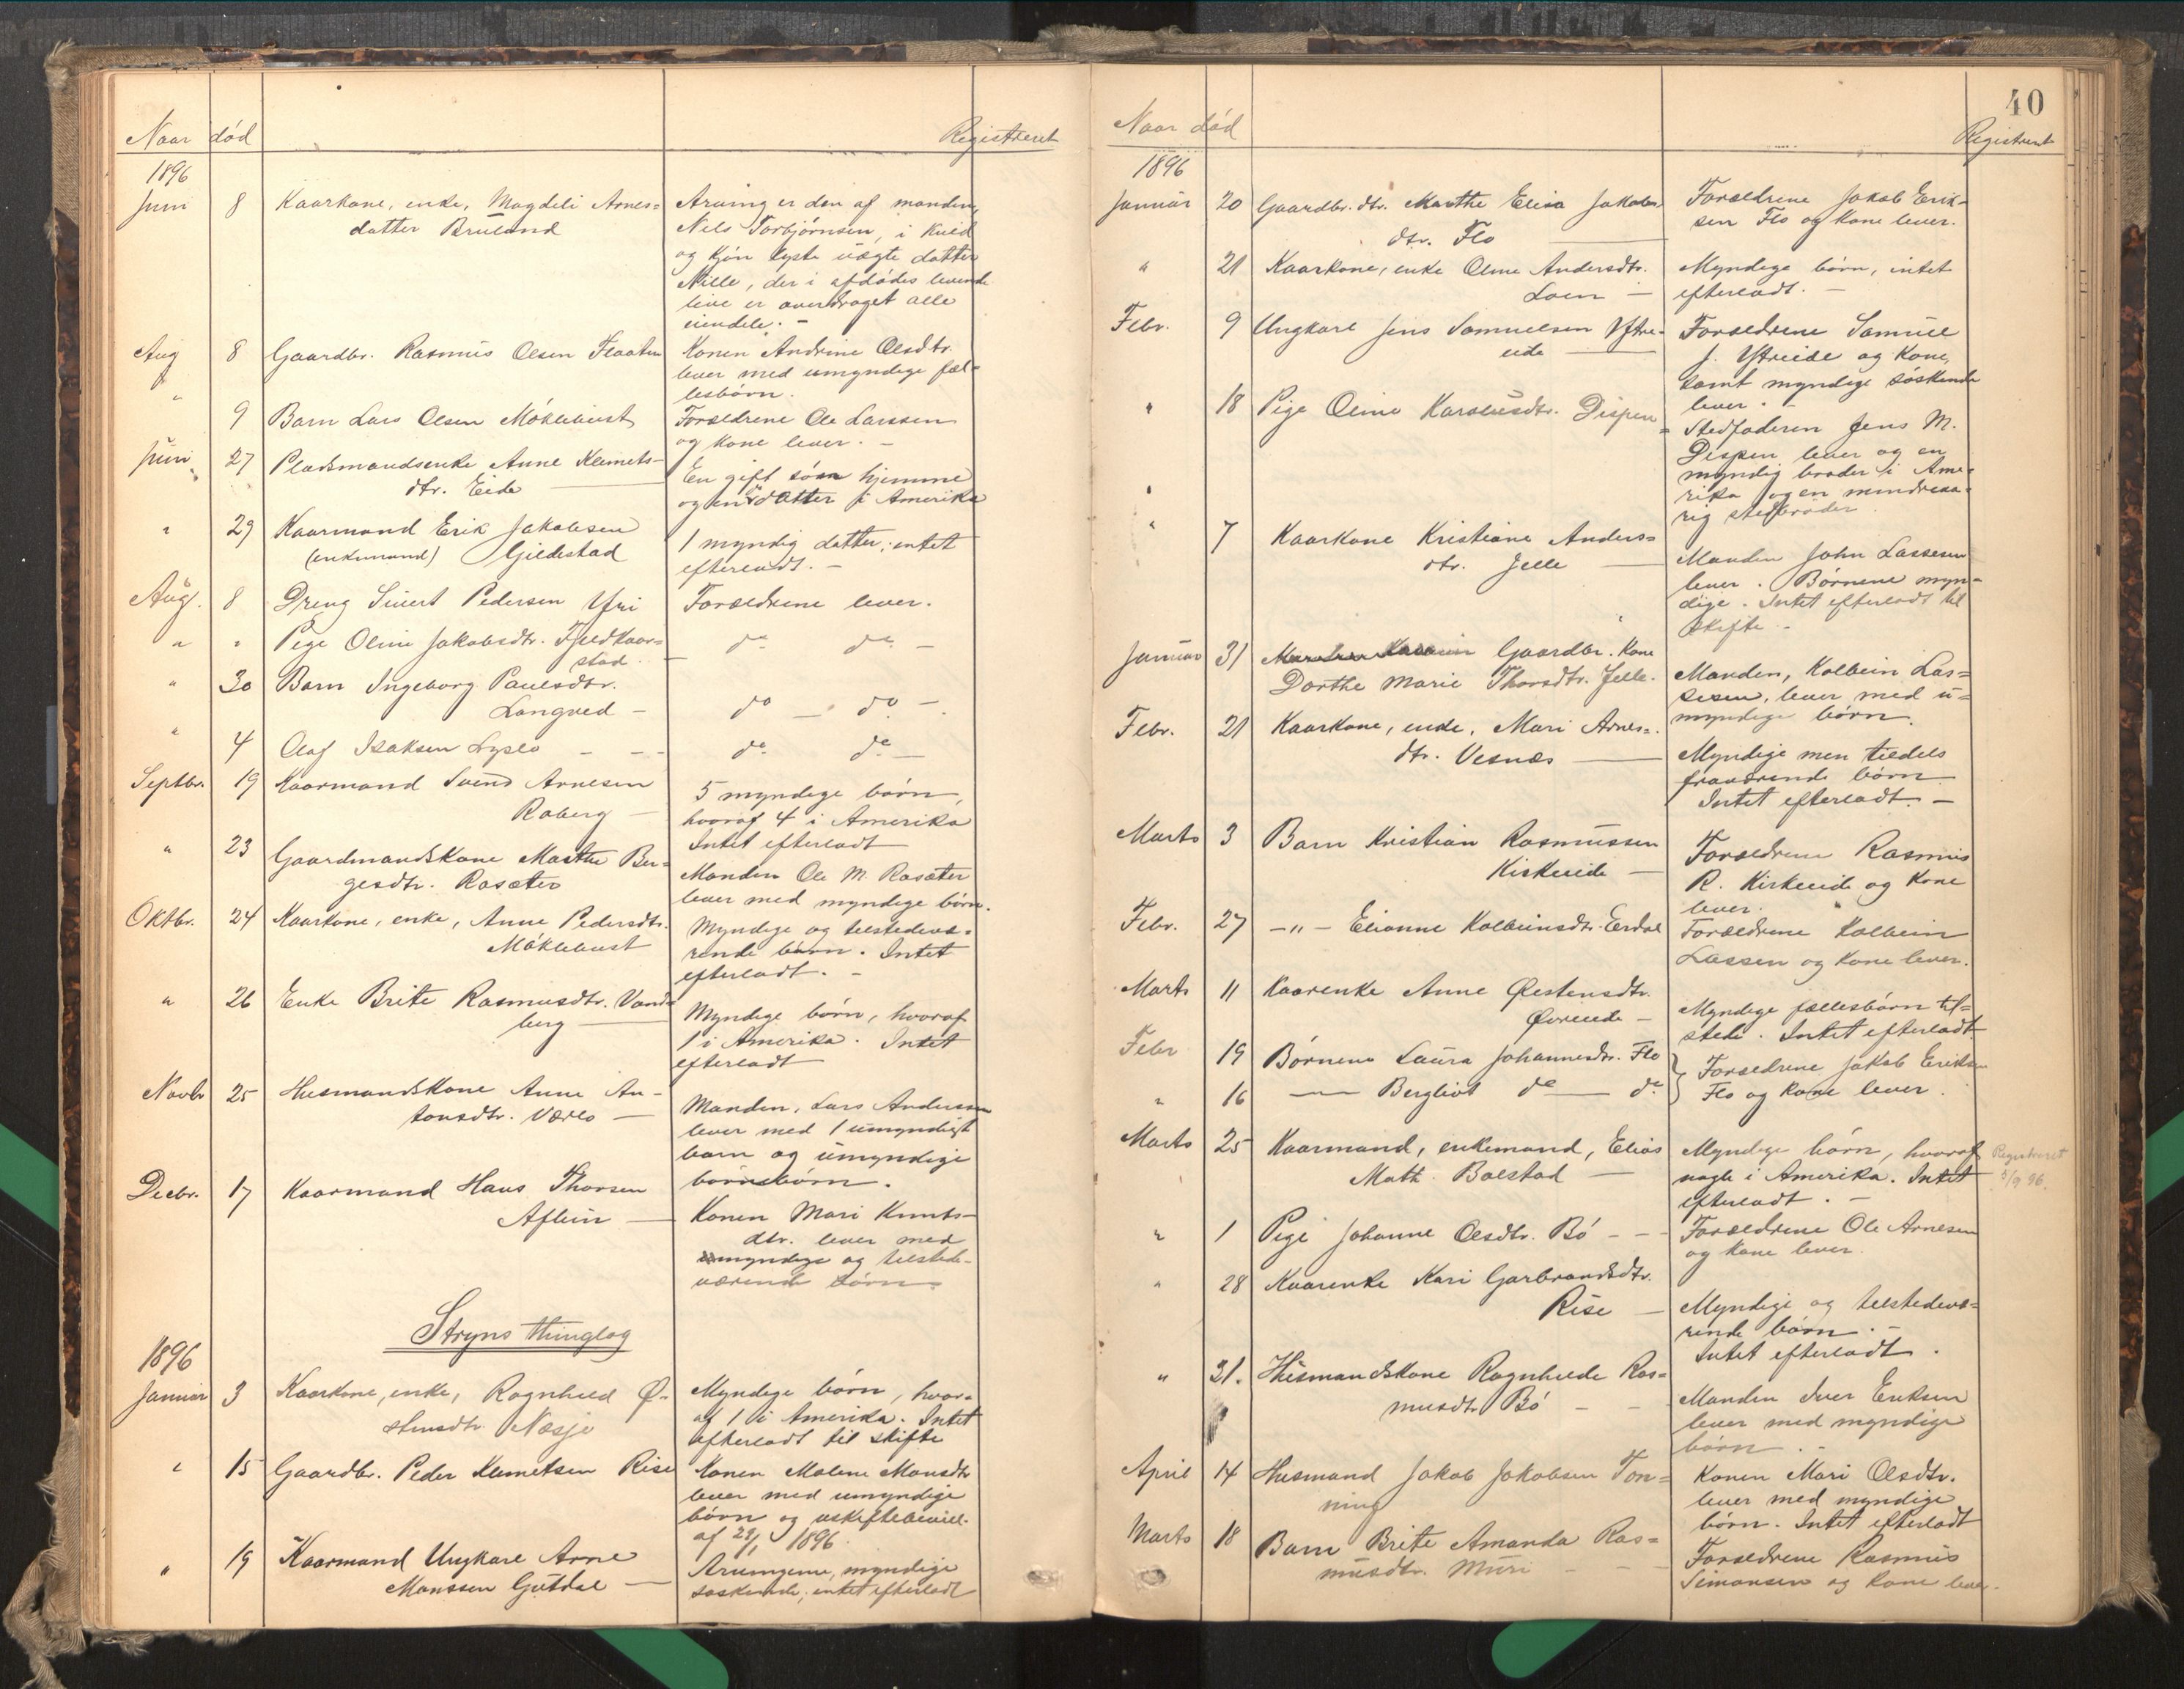 Naar død
Registreret
1896
Juni 8 Kaarkone, enke, Magdeli Arnes=
datter Bruland
Arving er den af manden,
Nils Torbjørnsen, i kuld
og kjøn lyste uægte datter
Nille, der i afdødes levende
live er overdraget alle
eiendele. -
Aug 8 Gaardbr. Rasmus Olsen Flaaten
Konen Andrine Olsdtr.
lever med umyndige fæl=
lesbørn.
" 9 Barn Lars Olsen Møklebust
Forældrene Ole Larssen
og kone lever. -
Juni 27 Pladsmandsenke Anne Klemets-
dtr. Eide
En gift søn hjemme
og en datter i Amerika
" 29 Kaarmand Erik Jakobsen
(enkemand) Gjildestad
1 myndig datter; intet
efterladt. -
Aug. 8 Dreng Sivert Pedersen Yri
Forældrene lever.
" " Pige Oline Jakobsdtr. Fjeldkaar=
stad. -
do do -
" 30 Barn Ingeborg Paulsdtr.
Langved -
do - do -
" 4 Olaf Isaksen Lyslo - - -
do do -
Septbr. 19 Kaarmand Svend Arnesen
Raberg -
5 myndige børn,
hvoraf 4 i Amerika
Intet efterladt
" 23 Gaardmandskone Marthe Ber=
gesdtr. Rosæter
Manden Ole M. Rosæter
lever med myndige børn.
Oktbr. 24 Kaarkone, enke, Anne Pedersdtr.
Møklebust
Myndige og tilstedevæ=
rende børn. Intet
efterladt. -
" 26 Enke Brite Rasmusdtr. Vand=
berg
Myndige børn, hvoraf
1 i Amerika. Intet
efterladt
Novbr 25 Husmandskone Anne An-
tonsdtr. Værlo -
Manden, Lars Andersen
lever med 1 umyndigt
barn og umyndige
børnebørn.
Decbr. 17 Kaarmand Hans Thorsen
Aflein -
Konen Mari Knuts-
dtr. lever med
myndige og tilstede-
værende børn.
Stryns thinglag
1896
Januar 3 Kaarkone, enke, Ragnhild Ø-
stensdtr. Nesje
Myndige børn, hvor=
af 1 i Amerika. Intet
efterladt til skifte
" 15 Gaardbr. Peder Klemetsen Rise
Konen Malene Monsdtr
lever med umyndige
børn og uskiftebevill.
af 29/1 1896.
" 19 Kaarmand Ungkarl Arne
Monssen Gutdal -
Arvingerne, myndige
søskende; intet efterladt
40
Naar død
Registreret
1896
Januar 20 Gaardbr. dtr. Marthe Elisa Jakobs
dtr. Flo
Forældrene Jakob Erik-
sen Flo og kone lever.
" 21 Kaarkone, enke Oline Andersdtr.
Loen -
Myndige børn, intet
efterladt. -
Febr. 9 Ungkarl Jens Samuelsen Ytre-
eide
Forældrene Samuel
J. Ytreeide og kone,
samt myndige søskende
lever. -
" 18 Pige Oline Karolusdtr. Dispen
Stedfaderen Jens M.
Dispen lever og en
myndig broder i Ame=
rika og en mindreaa=
rig stedbroder.
" 7 Kaarkone Kristiane Anders=
dtr. Jelle
Manden John Lassesen
lever. Børnene myn=
dige. Intet efterladt til
skifte. -
Januar 31 Gaardbr. kone
Dorthe Marie Thorsdtr. Jelle.
Manden, Kolbein Las=
sesen, lever med u=
myndige børn.
Febr. 21 Kaarkone, enke, Mari Arnes=
dtr. Vesnæs
Myndige men tildels
fraværende børn
Intet efterladt. -
Marts 3 Barn Kristian Rasmussen
Kirkeeide -
Forældrene Rasmus
R. Kirkeeide og kone
lever.
Febr. 27 -"- Elianne Kolbeinsdtr. Erdal
Forældrene Kolbein
Lassen og kone lever.
Marts 11 Kaarenke Anne Østensdtr.
Øvreeide -
Myndige fællesbørn til=
stede. Intet efterladt
Febr 19 Børnene Laura Johannesdtr. Flo
" 16 Bergliot do do
Forældrene Jakob Eriksen
Flo og kone lever.
Marts 25 Kaarmand, enkemand, Elias
Math. Bolstad
Myndige børn, hvoraf
nogle i Amerika. Intet
efterladt. -
Registreret
/9 96.
" 1 Pige Johanne Olsdtr. Bø - -
Forældrene Ole Arnesen
og kone lever.
" 28 Kaarenke Kari Garbrandsdtr.
Rise -
Myndige og tilstedevæ=
rende børn. -
Intet efterladt.
" 31. Husmandskone Ragnhilde Ras=
musdtr Bø - -
Manden Iver Eriksen
lever med myndige
børn. -
April 14 Husmand Jakob Jakobsen Ton=
ning
Konen Mari Olsdtr.
lever med myndige
børn. Intet efterladt
Marts 18 Barn Brite Amanda Ras=
musdtr. Muri -
Forældrene Rasmus
Simonsen og kone lever.